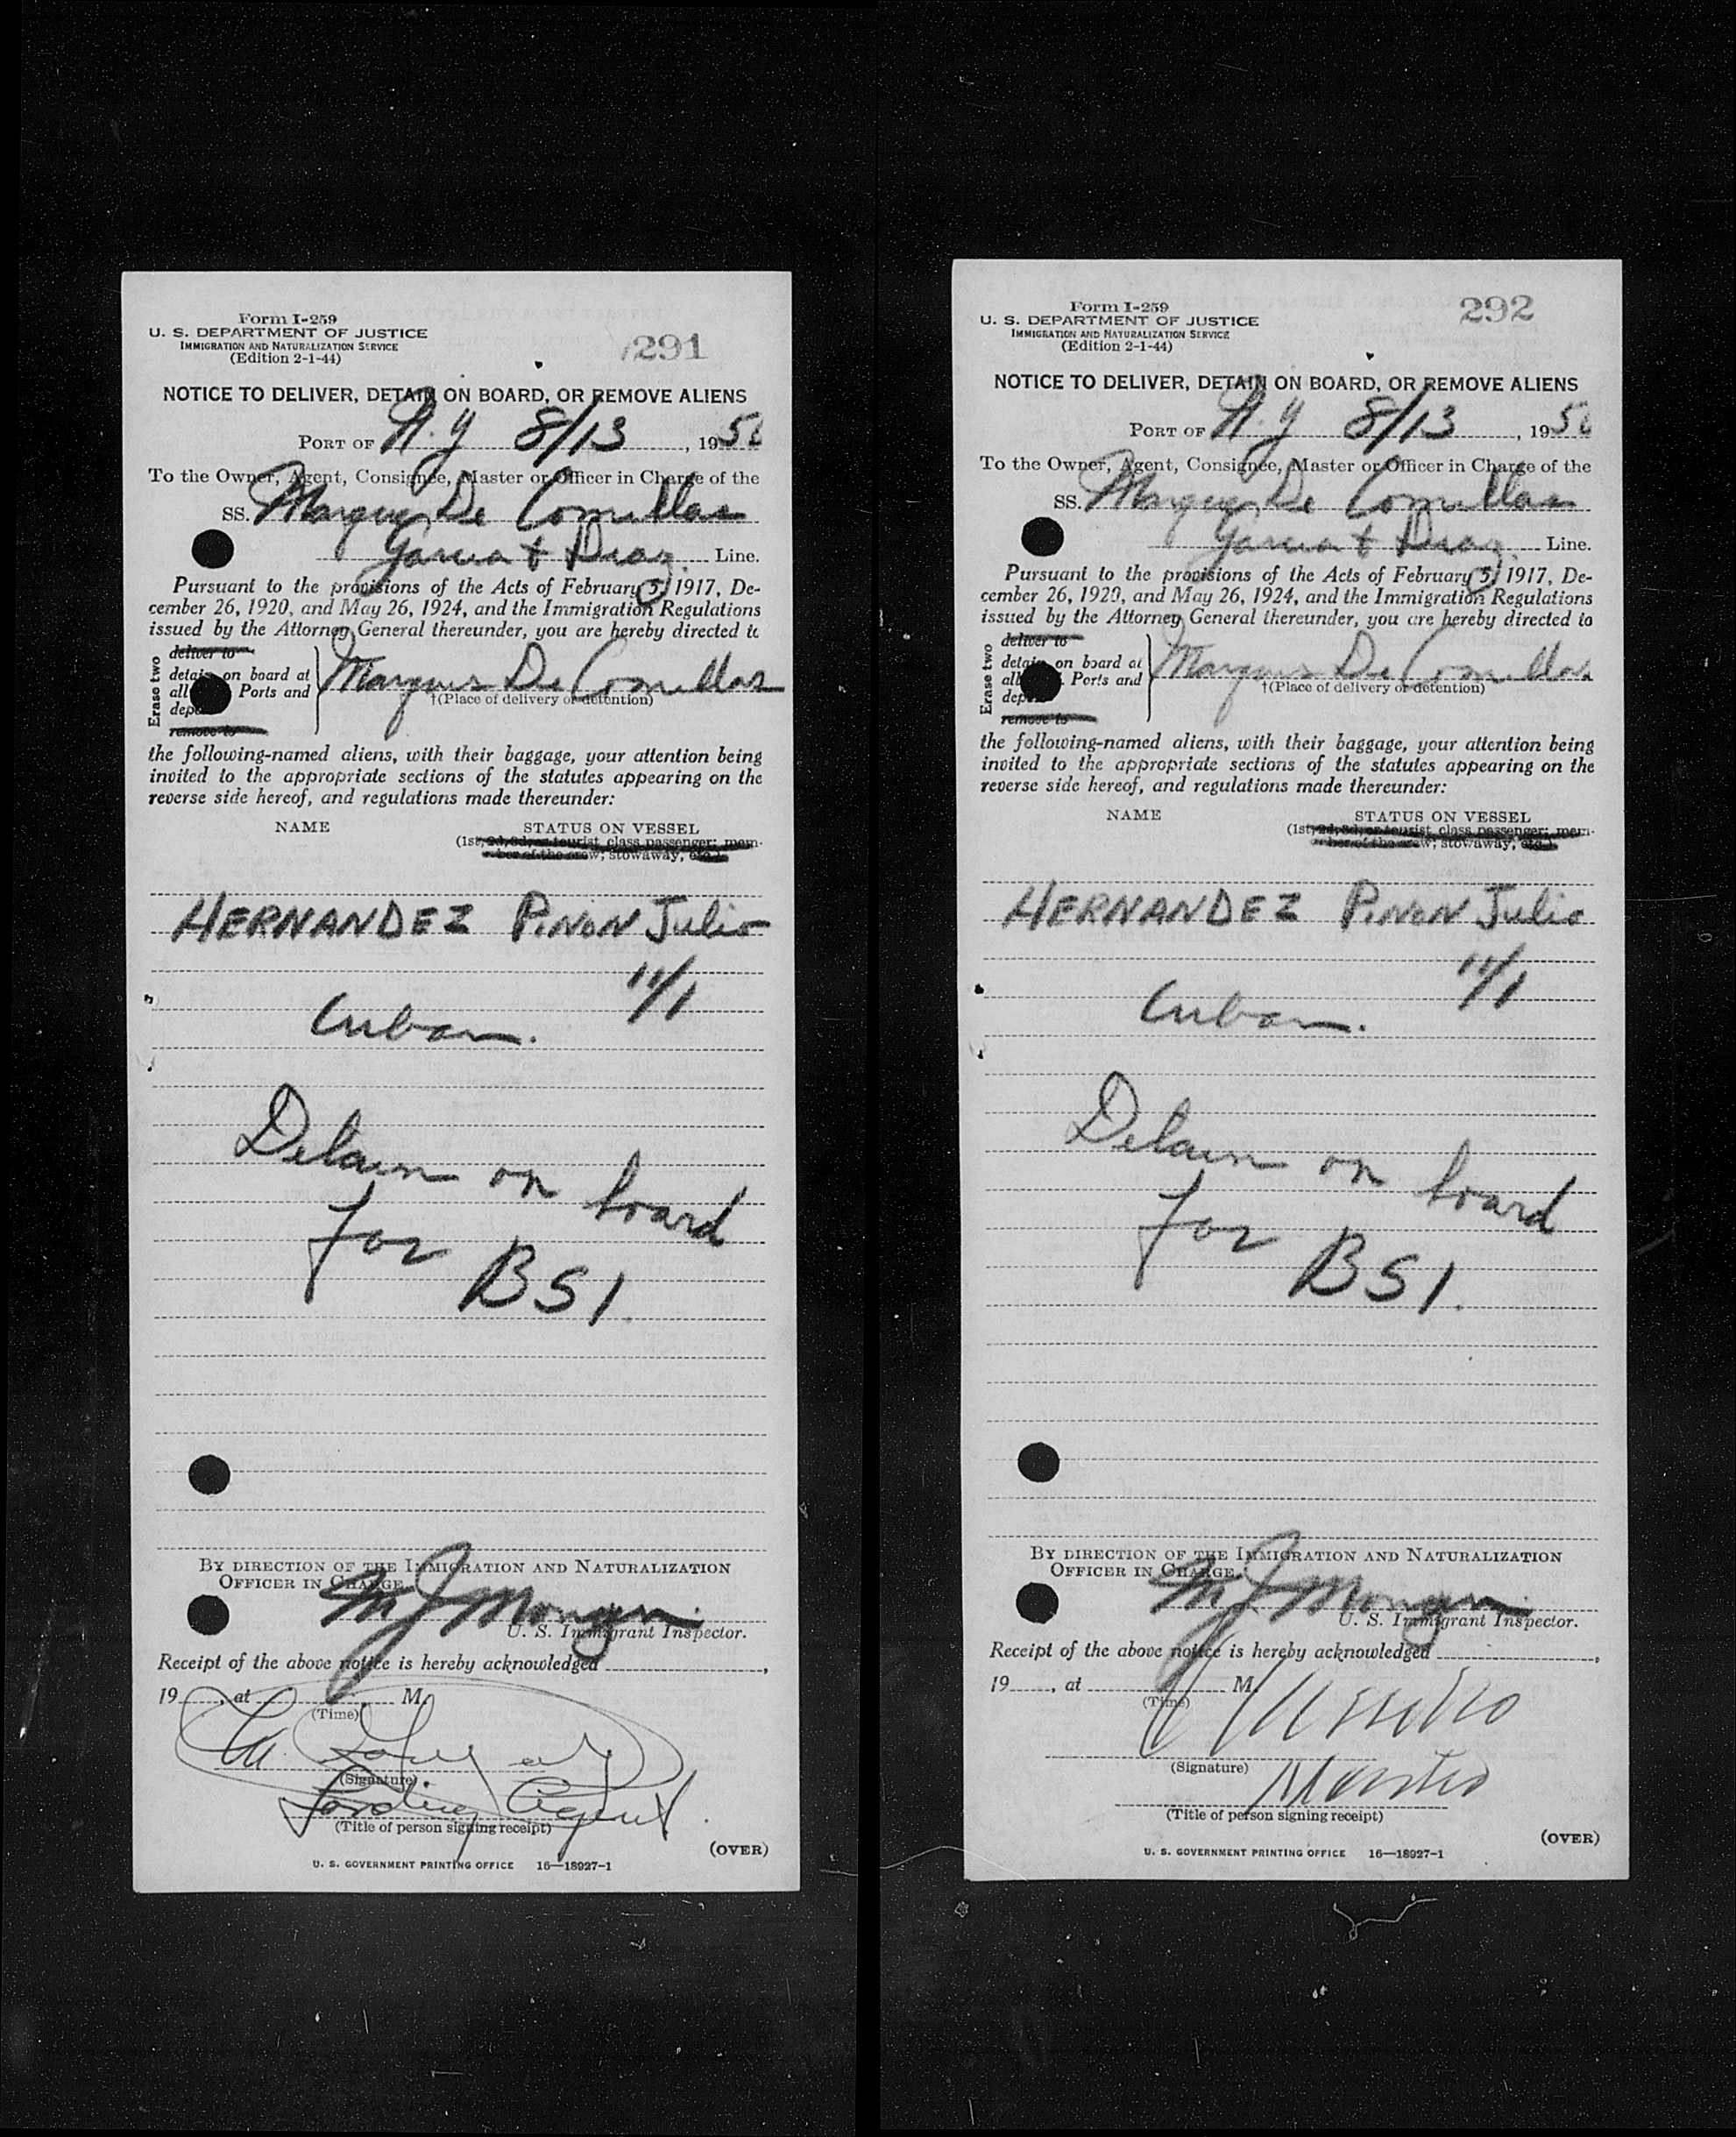 Form I-259
U. S. DEPARTMENT OF JUSTICE
IMMIGRATION AND NATURALIZATION SERVICE
(Edition 2-1-44)
291
NOTICE TO DELIVER, DETAIN ON BOARD, OR REMOVE ALIENS
PORT OF N.Y 8/13, 195
To the Owner, Agent, Consignee, Master or Officer in Charge of the
SS. Marques De Comillas
Garcia & Diaz Line.
Pursuant to the provisions of the Acts of February 5, 1917, De-
cember 26, 1920, and May 26, 1924, and the Immigration Regulations
issued by the Attorney General thereunder, you are hereby directed to
Erase two
deliver to
detain on board at
all Ports and
remove to
Marques De Comillas
†(Place of delivery or detention)
the following-named aliens, with their baggage, your attention being
invited to the appropriate sections of the statutes appearing on the
reverse side hereof, and regulations made thereunder:
NAME STATUS ON VESSEL
(1st, 2d, 3d, or tourist class passenger; mem-
ber of the crew; stowaway, etc.)
HERNANDEZ PINON Julio
11/1
Cuban.
Detain on board
for BSI.
BY DIRECTION OF THE IMMIGRATION AND NATURALIZATION
OFFICER IN CHARGE
M J
U. S. Immigrant Inspector.
Receipt of the above notice is hereby acknowledged
19, at M
(Time)
(Signature)
Landing Agent
(Title of person signing receipt)
(OVER)
U. S. GOVERNMENT PRINTING OFFICE 16—18927-1
Form I-259
U. S. DEPARTMENT OF JUSTICE
IMMIGRATION AND NATURALIZATION SERVICE
(Edition 2-1-44)
292
NOTICE TO DELIVER, DETAIN ON BOARD, OR REMOVE ALIENS
PORT OF N.Y 8/13, 195
To the Owner, Agent, Consignee, Master or Officer in Charge of the
SS. Marques De Comillas
Garcia & Diaz Line.
Pursuant to the provisions of the Acts of February 5, 1917, De-
cember 26, 1920, and May 26, 1924, and the Immigration Regulations
issued by the Attorney General thereunder, you are hereby directed to
Erase two
deliver to
detain on board at
all Ports and
remove to
Marques De Comillas
†(Place of delivery or detention)
the following-named aliens, with their baggage, your attention being
invited to the appropriate sections of the statutes appearing on the
reverse side hereof, and regulations made thereunder:
NAME STATUS ON VESSEL
(1st, 2d, 3d, or tourist class passenger; mem-
ber of the crew; stowaway, etc.)
HERNANDEZ PINON Julio
11/1
Cuban.
Detain on board
for BSI.
BY DIRECTION OF THE IMMIGRATION AND NATURALIZATION
OFFICER IN CHARGE
M J
U. S. Immigrant Inspector.
Receipt of the above notice is hereby acknowledged
19, at M
(Time)
(Signature)
(Title of person signing receipt)
(OVER)
U. S. GOVERNMENT PRINTING OFFICE 16—18927-1